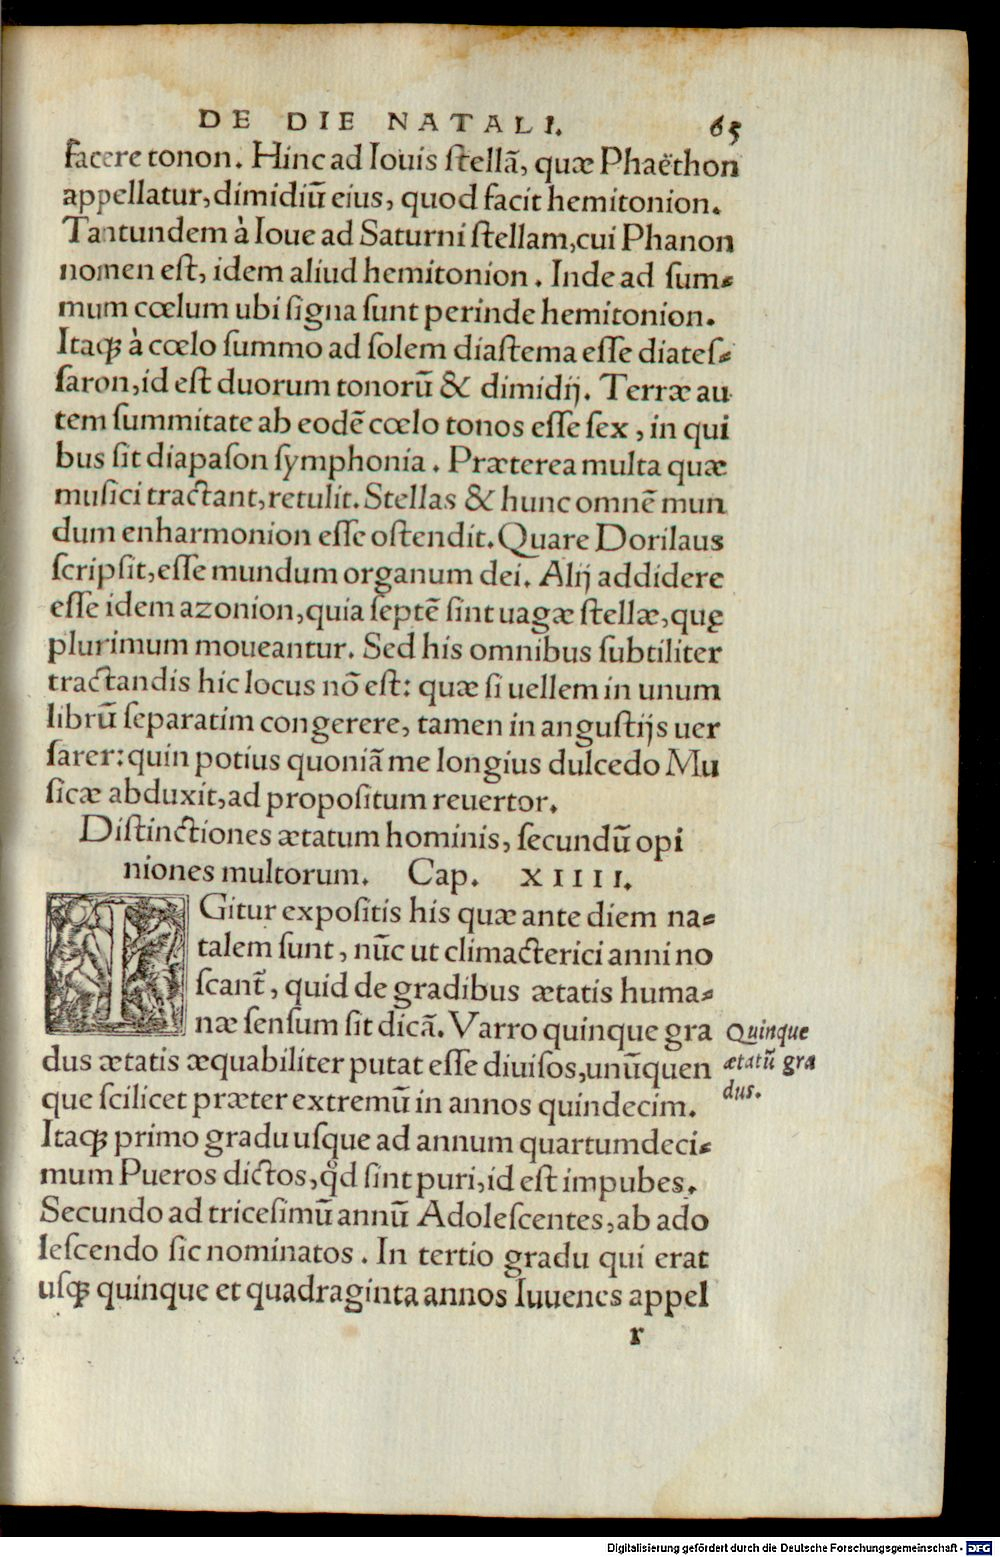 DE DIE NATALI. 65
facere tonon. Hinc ad Iouis ſtellā, quæ Phaëthon
appellatur, dimidiū eius, quod facit hemitonion.
Tantundem à Ioue ad Saturni ſtellam, cui Phanon
nomen eſt, idem aliud hemitonion. Inde ad ſum⸗
mum cœlum ubi ſigna ſunt perinde hemitonion.
Itaqꝫ à cœlo ſummo ad ſolem diaſtema eſſe diateſ⸗
ſaron, id eſt duorum tonorū & dimidij. Terræ au
tem ſummitate ab eodē cœlo tonos eſſe ſex, in qui
bus ſit diapaſon ſymphonia. Præterea multa quæ
muſici tractant, retulit. Stellas & hunc omnē mun
dum enharmonion eſſe oſtendit. Quare Dorilaus
ſcripſit, eſſe mundum organum dei. Alij addidere
eſſe idem azonion, quia ſeptē ſint uagæ ſtellæ, quę
plurimum moueantur. Sed his omnibus ſubtiliter
tractandis hic locus nō eſt: quæ ſi uellem in unum
librū ſeparatim congerere, tamen in anguſtijs uer
ſarer: quin potius quoniā me longius dulcedo Mu
ſicæ abduxit, ad propoſitum reuertor.
Diſtinctiones ætatum hominis, ſecundū opi
niones multorum. Cap. XIIII.
IGitur expoſitis his quæ ante diem na⸗
talem ſunt, nūc ut climacterici anni no
ſcant̄, quid de gradibus ætatis huma⸗
næ ſenſum ſit dicā. Varro quinque gra
dus ætatis æquabiliter putat eſſe diuiſos, unūquen
que ſcilicet præter extremū in annos quindecim.
Itaqꝫ primo gradu uſque ad annum quartumdeci⸗
mum Pueros dictos, qd̕ ſint puri, id eſt impubes.
Secundo ad triceſimū annū Adoleſcentes, ab ado
leſcendo ſic nominatos. In tertio gradu qui erat
uſqꝫ quinque et quadraginta annos Iuuenes appel
r
Quinque
ætatū gra
dus.
Digitalisierung gefördert durch die Deutsche Forschungsgemeinschaft - DFG